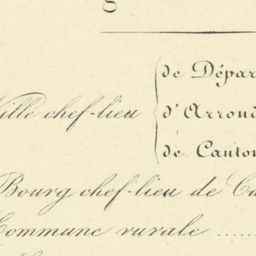 de Dépar
Ville chef-lieu d'Arrond
de Canton
Bourg chef-lieu de Ca
Commune rurale ......